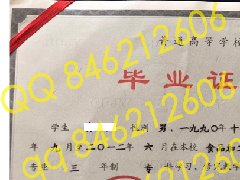 普通高等学校
毕业证
学生 性别 男，一九九〇年十
九月至二〇一二年六月在本校
专业 三 年制
QQ 846212606
QQ 846212606
QQ 846212606